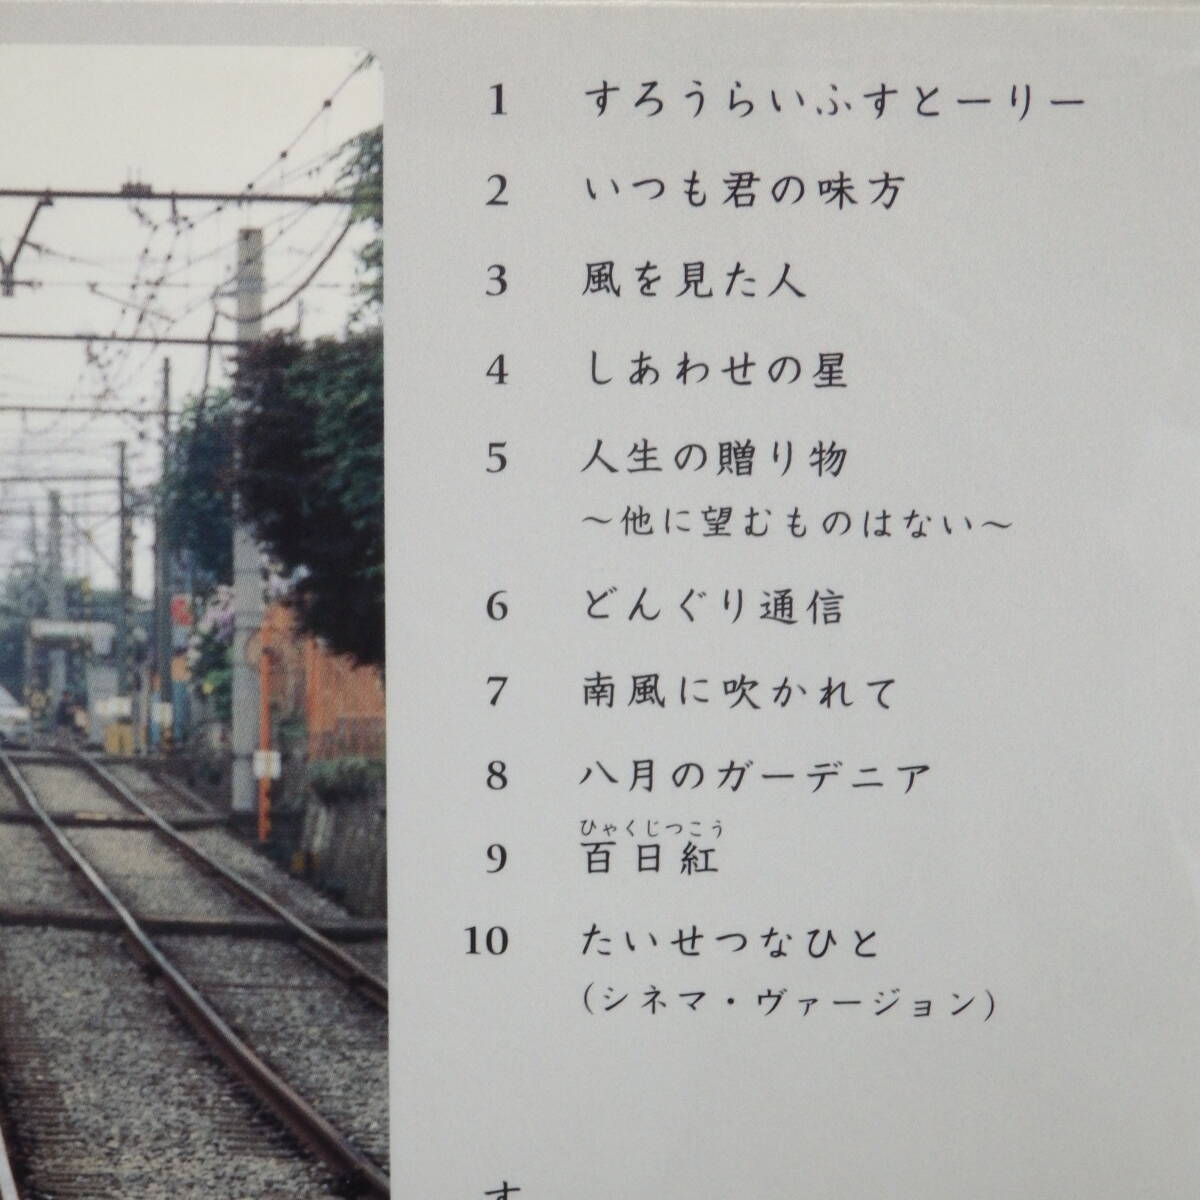 1 すろうらいふすとーりー
2 いつも君の味方
3 風を見た人
4 しあわせの星
5 人生の贈り物
～他に望むものはない～
6 どんぐり通信
7 南風に吹かれて
8 八月のガーデニア
ひゃくじつこう
9 百日紅
10 たいせつなひと
（シネマ・ヴァージョン）